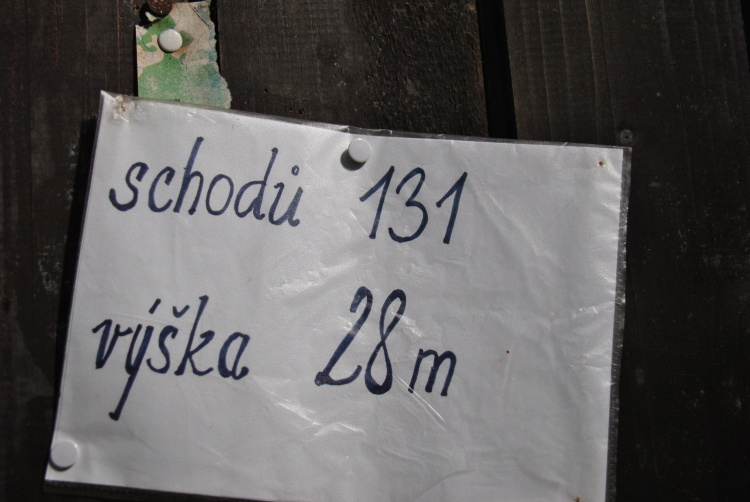 schodů 131
výška 28m